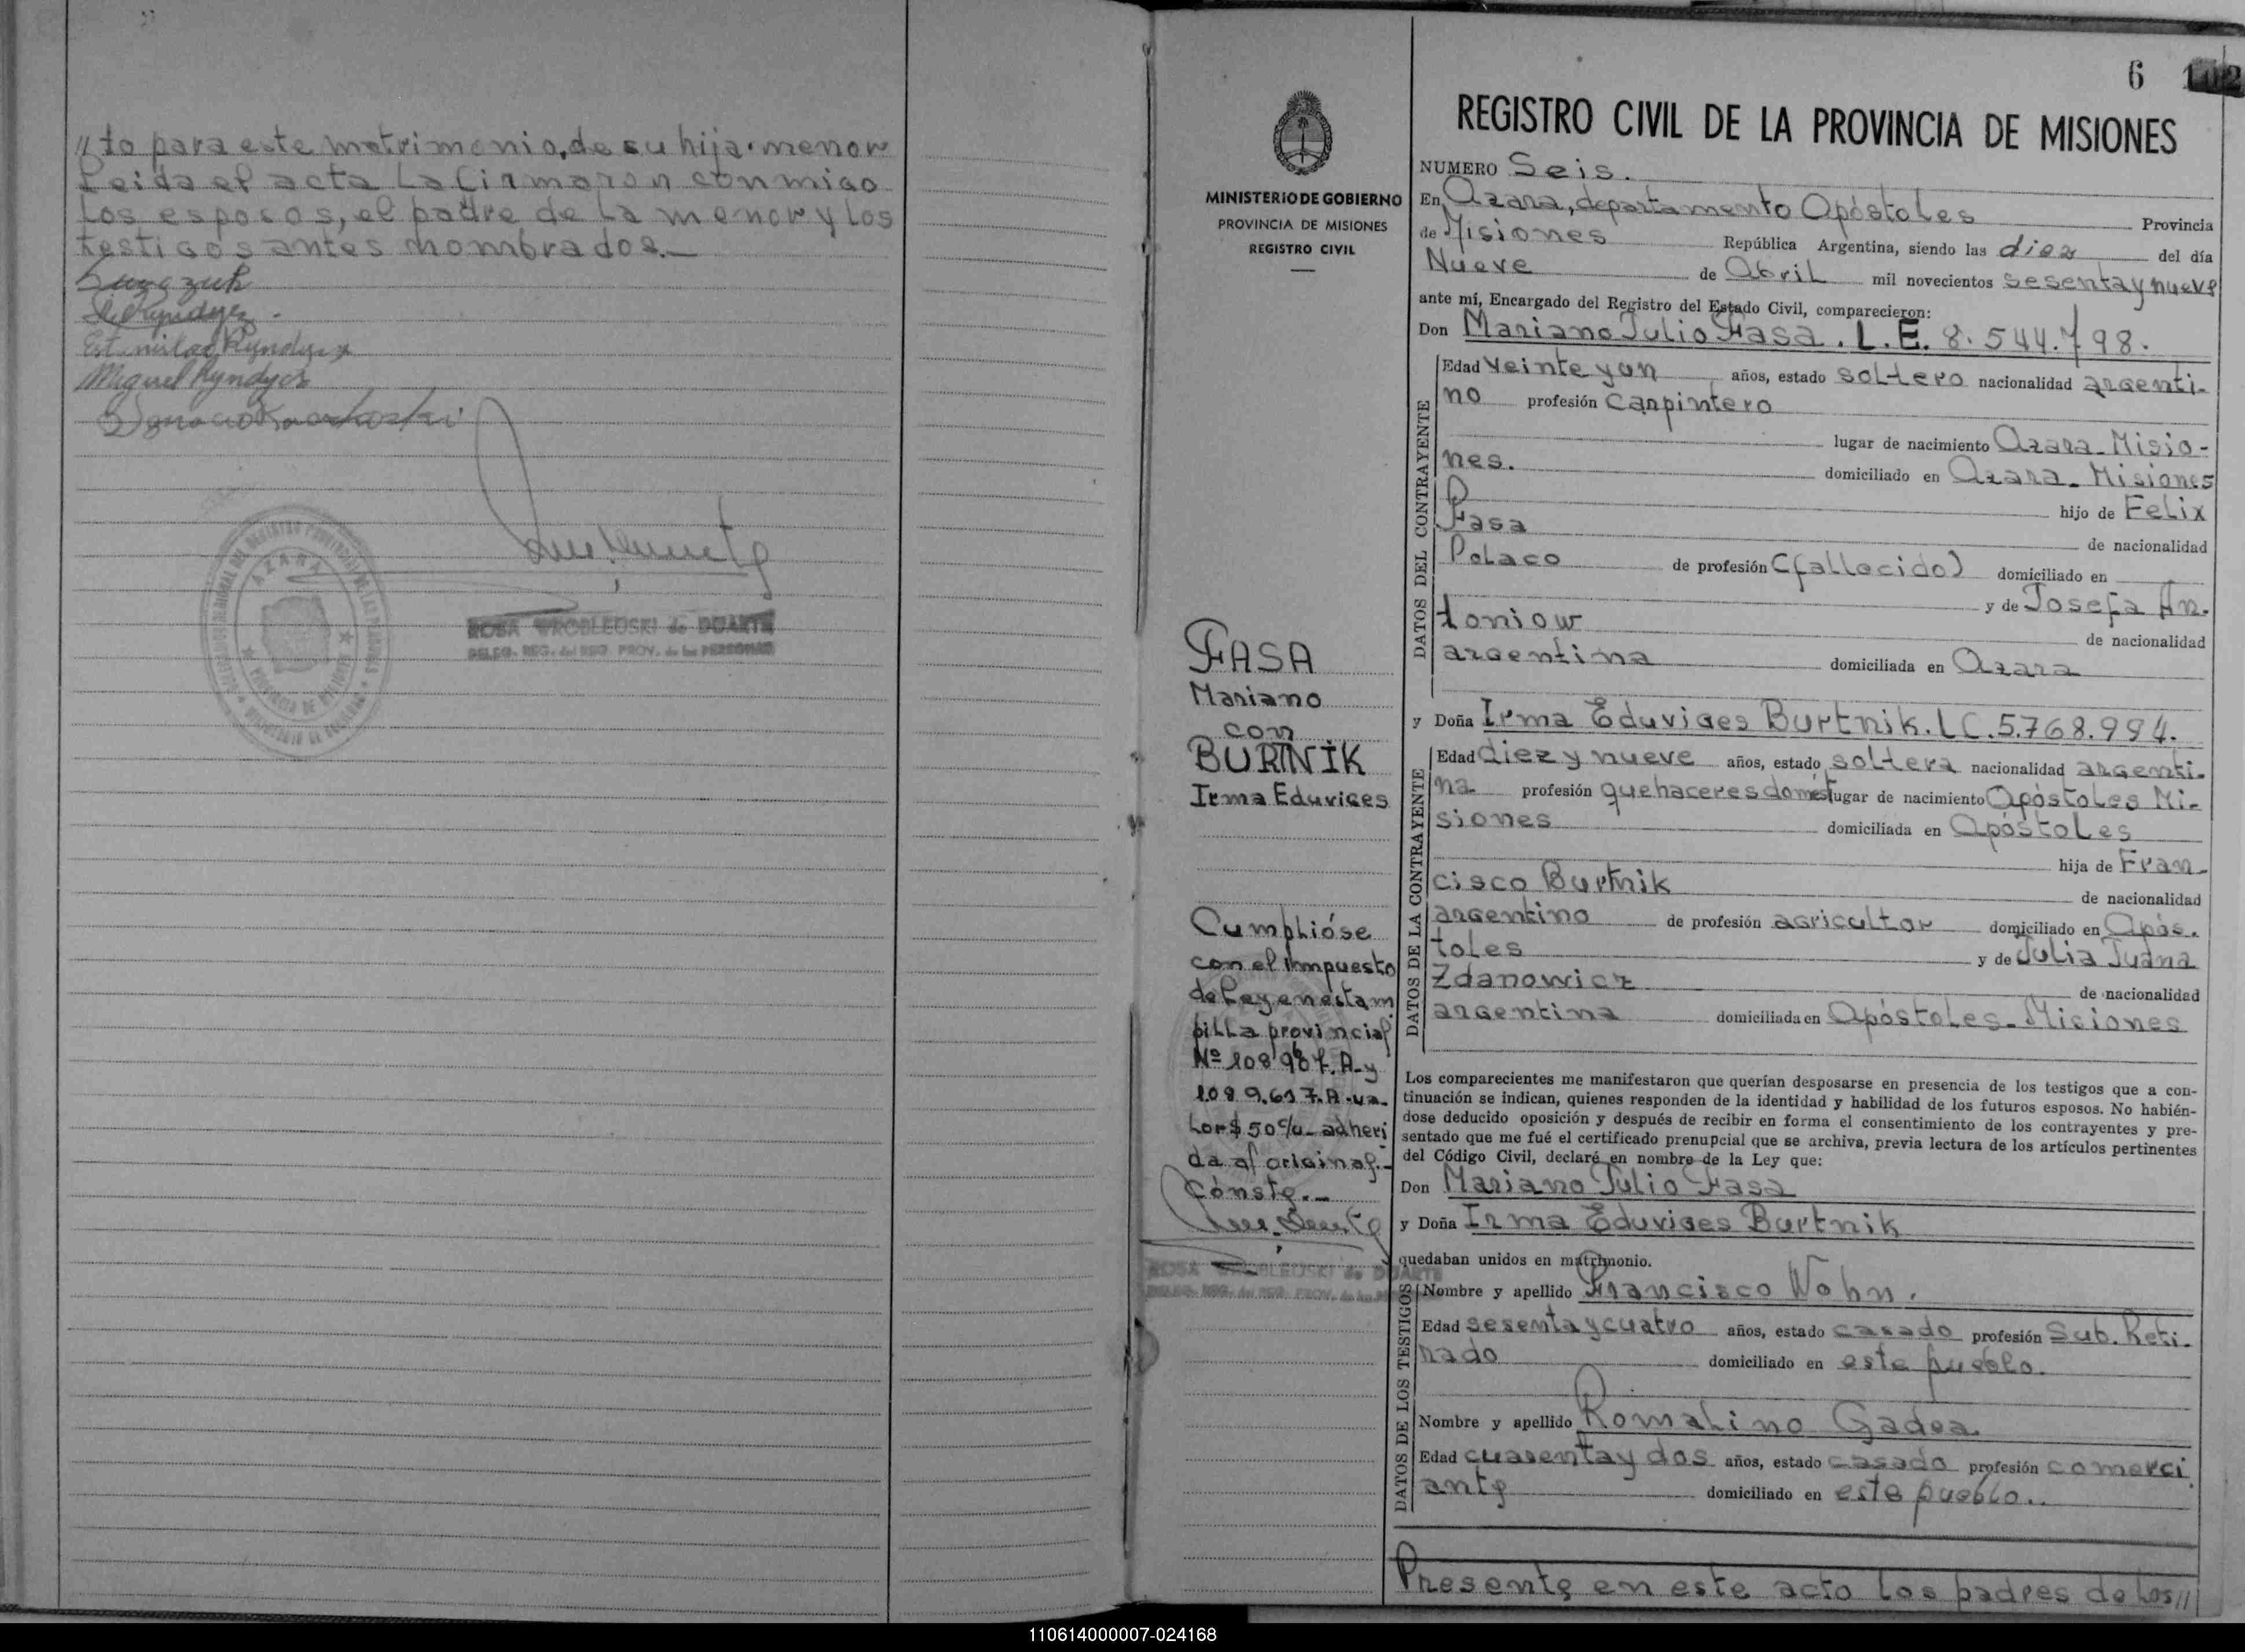 //to para este matrimonio, de su hija menor
Leida el acta la firmaron conmigo
los esposos, el padre de la menor y los
testigos antes nombrados.—
Estanislao Ryndycz
Miguel Ryndycz
AZARA
PROVINCIA DE MISIONES
ROSA WROBLEUSKI de DUARTE
DELEG. REG. del REG. PROV. de las PERSONAS
MINISTERIO DE GOBIERNO
PROVINCIA DE MISIONES
REGISTRO CIVIL
FASA
Mariano
con
BURTNIK
Irma Eduviges
Cumplióse
con el impuesto
de Ley en estam
pilla provincial
Nº 108 967. A-y
108 9.617. A-va-
lor $ 50 c/u- adheri
da al original.-
Cónste.-
ROSA WROBLEUSKI de DUARTE
DELEG. REG. del REG. PROV. de las
6 102
REGISTRO CIVIL DE LA PROVINCIA DE MISIONES
NUMERO Seis.
En Azara, departamento Apóstoles Provincia
de Misiones República Argentina, siendo las diez del día
Nueve de Abril mil novecientos sesenta y nueve
ante mí, Encargado del Registro del Estado Civil, comparecieron:
Don Mariano Julio Fasa. L.E. 8.544.798.
DATOS DEL CONTRAYENTE
Edad Veinte y un años, estado soltero nacionalidad argenti-
no profesión carpintero
lugar de nacimiento Azara Misio-
nes. domiciliado en Azara. Misiones
hijo de Felix
Fasa de nacionalidad
Polaco de profesión (fallecido) domiciliado en
y de Josefa An.
toniow de nacionalidad
argentina domiciliada en Azara
y Doña Irma Eduviges Burtnik. LC. 5.768.994.
DATOS DE LA CONTRAYENTE
Edad diez y nueve años, estado soltera nacionalidad argenti-
na profesión quehaceres domést lugar de nacimiento Apóstoles Mi-
siones domiciliada en Apóstoles
hija de Fran-
cisco Burtnik de nacionalidad
argentino de profesión agricultor domiciliado en Após.
toles y de Julia Juana
Zdanowicz de nacionalidad
argentina domiciliada en Apóstoles. Misiones
Los comparecientes me manifestaron que querían desposarse en presencia de los testigos que a con-
tinuación se indican, quienes responden de la identidad y habilidad de los futuros esposos. No habién-
dose deducido oposición y después de recibir en forma el consentimiento de los contrayentes y pre-
sentado que me fué el certificado prenupcial que se archiva, previa lectura de los artículos pertinentes
del Código Civil, declaré en nombre de la Ley que:
Don Mariano Julio Fasa
y Doña Irma Eduviges Burtnik
quedaban unidos en matrimonio.
DATOS DE LOS TESTIGOS
Nombre y apellido Francisco Wohn.
Edad sesenta y cuatro años, estado casado profesión Sub. Reti-
rado domiciliado en este pueblo.
Nombre y apellido Romalino Gadea
Edad cuarenta y dos años, estado casado profesión comerci
ante domiciliado en este pueblo..
Presente en este acto los padres de los//
110614000007-024168